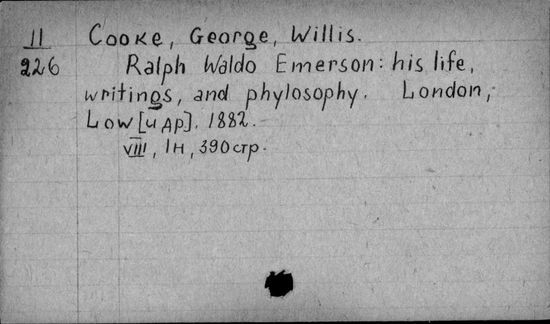 II
226
Cooke, George, Willis.
Ralph Waldo Emerson: his life,
writings, and phylosophy. London,
Low [и др]. 1882.
VIII, 1н, 390 стр.